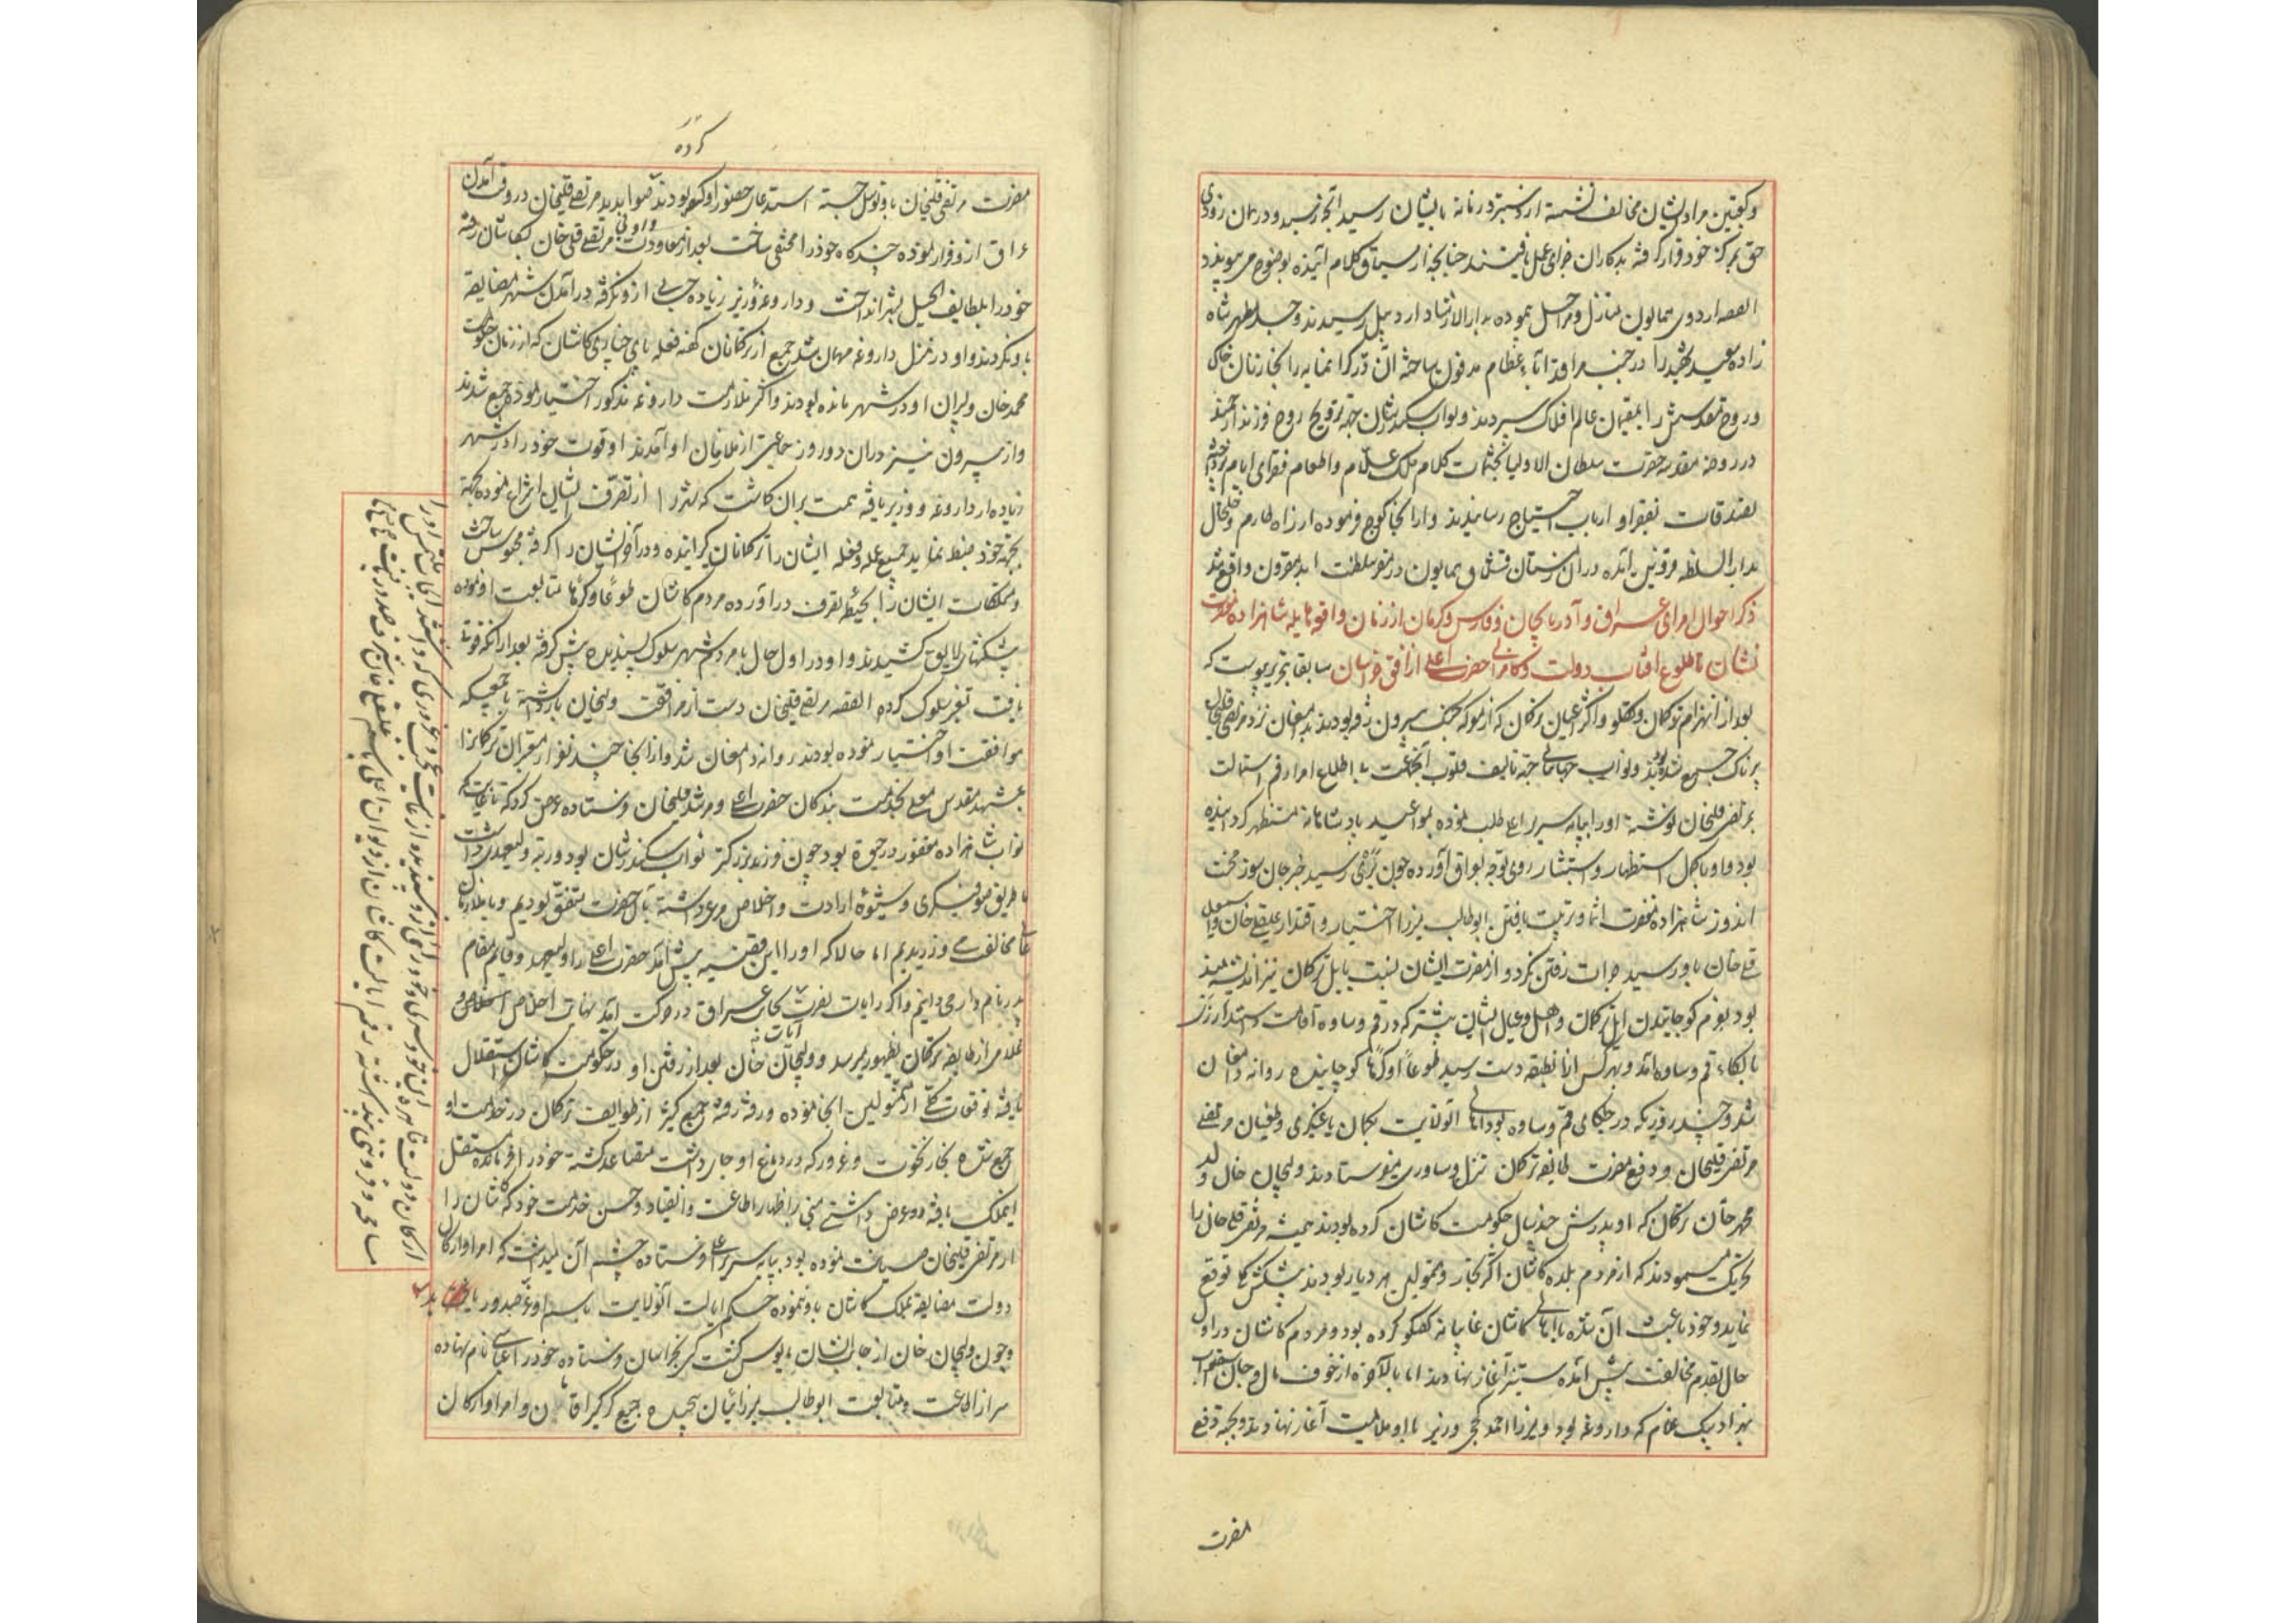 و کعبتین مراد ایشان مخالف نشسته از دستبرد زمانه بایشان رسید آنچه رسید و در زمان زودی
حق بمرکز خود قرار گرفته بدکاران جزای عمل یافتند چنانچه از سیاق کلام آینده بوضوح می پیوندد
القصه اردوی همایون منازل و مراحل پیموده بدار الارشاد اردبیل رسیدند و جسد مطهر شاه
زاده سعید شهید را در جنب مراقد آباء عظام مدفون ساخته آن در گرانمایه را بخازنان خاک
و روح مقدسش را بمقیمان عالم افلاک سپردند و نواب سکندرشان جهة ترویح روح فرزند ارجمند
در روضه مقدسه حضرت سلطان الاولیا بختمات کلام ملک علام و اطعام فقرای ایام پرداخته
تصدقات بفقرا و ارباب احتیاج رسانیدند و از انجا کوچ فرموده از راه طارم و خلخال
بدار السلطنه قزوین آمده در آن زمستان قشلاق همایون در مقر سلطنت ابد مقرون واقع شد
ذکر احوال امرای عراق و آذربایجان و فارس و کرمان از زمان واقعه هایله شاهزاده مغفرت
نشان تا طلوع آفتاب دولت و کامرانی حضرت اعلی از افق خراسان سابقا تحریر پیوست که
بعد از انهزام ترکمان و تکلو و اکثر اعیان ترکمان که از معرکه جنگ بیرون رفته بودند بدامغان نزد مرتضی قلیخان
پرناک جمع شده بودند و نواب جهانبانی جهة تألیف قلوب آنجماعت باطلاع امرا رقم استمالت
بمرتضی قلیخان نوشته او را بپایه سریر اعلی طلب نموده بمواعید پادشاهانه مستظهر گردانیده
بود و او با کمال استظهار و استبشار روی توجه بعراق آورده چون بری رسید خبر جان سوز محنت
اندوز شاهزاده مغفرت انتما و تربیت یافتن ابوطالب میرزا اختیار و اقتدار علیقلی خان و اسمعیل
قلی خان باو رسید جرات رفتن نکرد و از مضرت ایشان نسبت بایل ترکمان نیز اندیشه مند
بود بعزم کوچانیدن ایل ترکمان و اهل و عیال ایشان بیشتر که در قم و ساوه اقامت داشتند از ری
بالکاء قم و ساوه آمد و بهرکس از آن طبقه دست رسید طوعا او کرها کوچانیده روانه دامغان
شد و چند روزیکه در جلکای قم و ساوه بود اهالی آنولایت بگمان یاغیگری و طغیان مرتضی
مرتضی قلیخان و دفع مضرت طایفه ترکمان نزل و ساوری میفرستادند ولیجان خان ولد
محمدخان ترکمان که او و پدرش چند سال حکومت کاشان کرده بودند همیشه مرتضی قلی خان را
تحریک مینمودند که از مردم بلده کاشان اکثر تجار و متمولین هر دیار بودند پیشکش ها توقع
نماید و خود باعث آن شده با اهالی کاشان غایبانه گفتگو کرده بود و مردم کاشان در اول
حال بقدم مخالفت پیش آمده ستیز آغاز نهادند اما بالاخره از خوف مال و جان
بهزاد بیک غلام که داروغه بود و میرزا احمد کججی وزیر با او ملایمت آغاز نهادند و بجهة دفع
مضرت
کرده
مضرت مرتضی قلیخان باو توسل جسته استدعای حضور او بودند بصوابدید مرتضی قلیخان در وقت آمدن
عراق ازو فرار نموده چند گاه خود را مختفی ساخت بعد از معاودت مرتضی قلی خان بکاشان رفته
خود را بلطایف الحیل بشهر انداخت و داروغه و وزیر زیاده حسابی ازو نگرفته در آمدن شهر مضایقه
باو نکردند و او در منزل داروغه مهمان شد جمع از ترکمانان کهنه فعله بای کاشان که از زمان حکومت
محمدخان و پدران او در شهر مانده بودند و اکثر ملازمت داروغه مذکور اختیار نموده جمع شدند
و از بیرون نیز در آن دو روز جماعتی از ملازمان او آمدند او قوت خود را در شهر
زیاده از داروغه و وزیر یافته همت بر آن گماشت که شهر را از تصرف ایشان انتزاع نموده بجهة
بجهة خود ضبط نماید جمیع عمله و فعله ایشان را ترکمانان گیرانیده و در آخر ایشان را گرفته محبوس ساخت
و متملکات ایشان را بحیطه تصرف درآورده مردم کاشان طوعا و کرها متابعت او نموده
پیشکشهای لایق کشیدند و او در اول حال با مردم شهر سلوک پسندیده پیش گرفته بعد از آنکه قوت
یافت تغییر سلوک کرده القصه مرتضی قلیخان دست از مرافقت ولیجان بازداشته باجمعی که
موافقت او اختیار نموده بودند روانه دامغان شد و از آنجا چند نفر از معتبران ترکمان را
بمشهد مقدس معلی بخدمت بندگان حضرت اعلی و مرشد قلیخان فرستاده عرض کرد که تا غایت که
نواب شاهزاده مغفور در حیوة بود چون فرزند بزرگتر نواب سکندرشان بود و رتبه ولیعهدی داشت
ما طریق صوفیگری و شیوه ارادت و اخلاص مرعی داشته با آن حضرت متفق بودیم و با ملازمان
مخالفت می ورزیدیم اما حالا که او را این قضیه پیش آمد حضرت اعلی را ولیعهد و قایم مقام
پدر نامدار می دانیم و اگر رایات نصرت آیات بجانب عراق در حرکت آید نهایت اخلاص و
غلامی از طایفه ترکمان بظهور میرسد و ولیجان خان بعد از رفتن او در حکومت کاشان استقلال
یافته توقعات کلی از متمولین آنجا نموده و رفته رفته جمع کثیر از طوایف ترکمان در خدمت او
جمع شده بخار نخوت و غرور که در دماغ او جای داشت متصاعد گشته خود را فرمانده مستقل
آن ملک یافته و عرض داشتی مبنی بر اظهار اطاعت و انقیاد و حسن خدمت خود که کاشان را
از مرتضی قلیخان صیانت نموده بود بپایه سریر اعلی فرستاده چشم آن میداشت که امرا و ارکان
دولت مضایقه بملک کاشان باو ننموده حکم ایالت آنولایت باسم او عز صدور یابد
و چون ولیجان خان از جانب ایشان مایوس گشت کس بخراسان فرستاده خود را عباسی نام نهاده
سر از اطاعت و متابعت ابوطالب میرزائیان پیچیده جمع کرکیراقان و امرا و ارکان
ارکان دولت قاهره این خود سری و خود رایی ازو پسندیده از غایت نخوت و غروری که داشتند ایجاب ملتمس او را
مسامحه و فروتنی پنداشته رقم ایالت کاشان از دیوان اعلی باسم علیقلی خان شرف صدور یافت